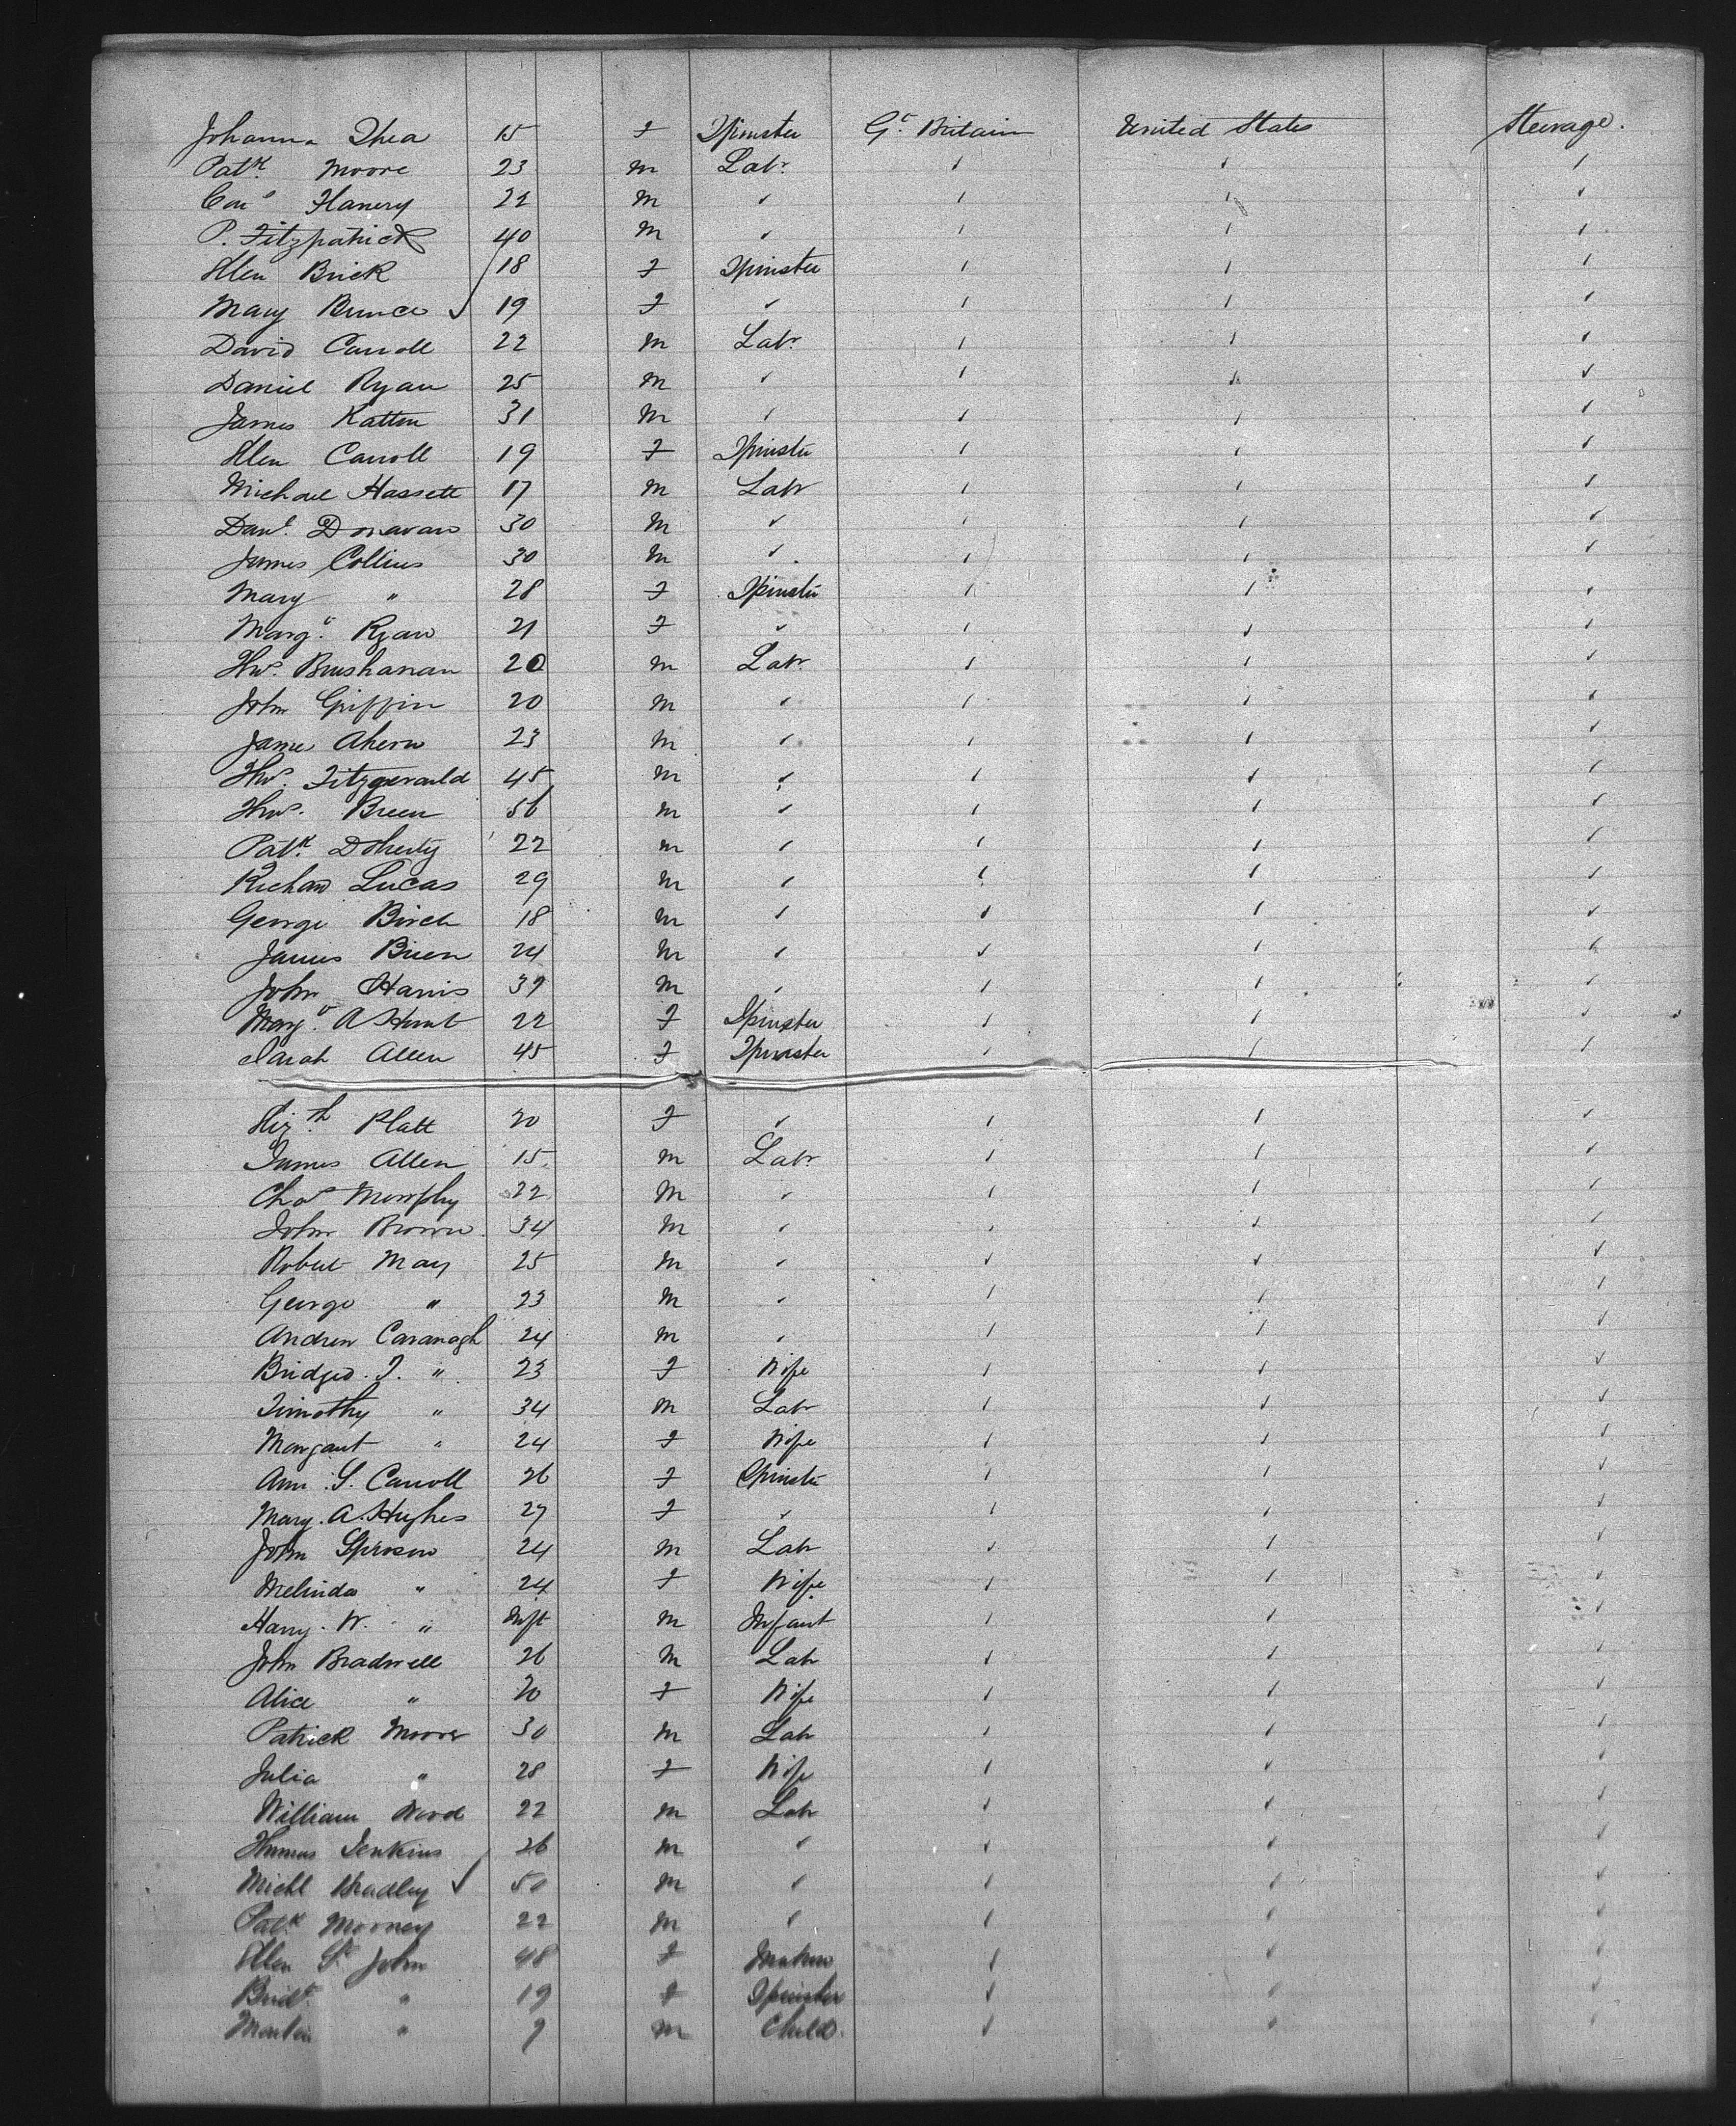 Johanna Shea 15 F Spinster Gt. Britain United States Steerage.
Patk. Moore 23 M Labr.
Cons Flanery 22 M
P. Fitzpatrick 40 M
Ellen Brick 18 F Spinster
Mary Bunce 19 F
David Carroll 22 M Labr.
Daniel Ryan 25 M
James Katten 31 M
Ellen Carroll 19 F Spinster
Michael Hassett 17 M Labr
Danl. Donavan 30 M
James Collins 30 M
Mary " 28 F Spinster
Margt. Ryan 21 F
Thos. Bushanan 20 M Labr.
John Griffin 20 M
James Ahern 23 M
Thos. Fitzgerauld 45 M
Thos. Breen 56 M
Patk. Doherty 22 M
Richard Lucas 29 M
George Birch 18 M
James Brien 24 M
John Harris 39 M
Margt. A Hunt 22 F Spinster
Sarah Allen 45 F Spinster
Elizth. Platt 20 F
James Allen 15 M Labr.
Chas Murphy 22 M
John Brown 34 M
Robert May 25 M
George " 23 M
Andrew Cavanagh 24 M
Bridged. J. " 23 F Wife
Timothy " 34 M Labr
Margaret " 24 F Wife
Ann. S. Carroll 26 F Spinster
Mary. A. Hughes 27 F
John Sproson 24 M Labr
Melinda " 24 F Wife
Harry. W. " Inft M Infant
John Bradwell 26 M Labr
Alice " 20 F Wife
Patrick Moore 30 M Labr
Julia " 28 F Wife
William Wood 22 M Labr
Thomas Jenkins 26 M
Michl Bradley 50 M
Patk Mooney 22 M
Ellen St. John 48 F
Bridt. " 19 F Spinster
Martin " 9 M Child.